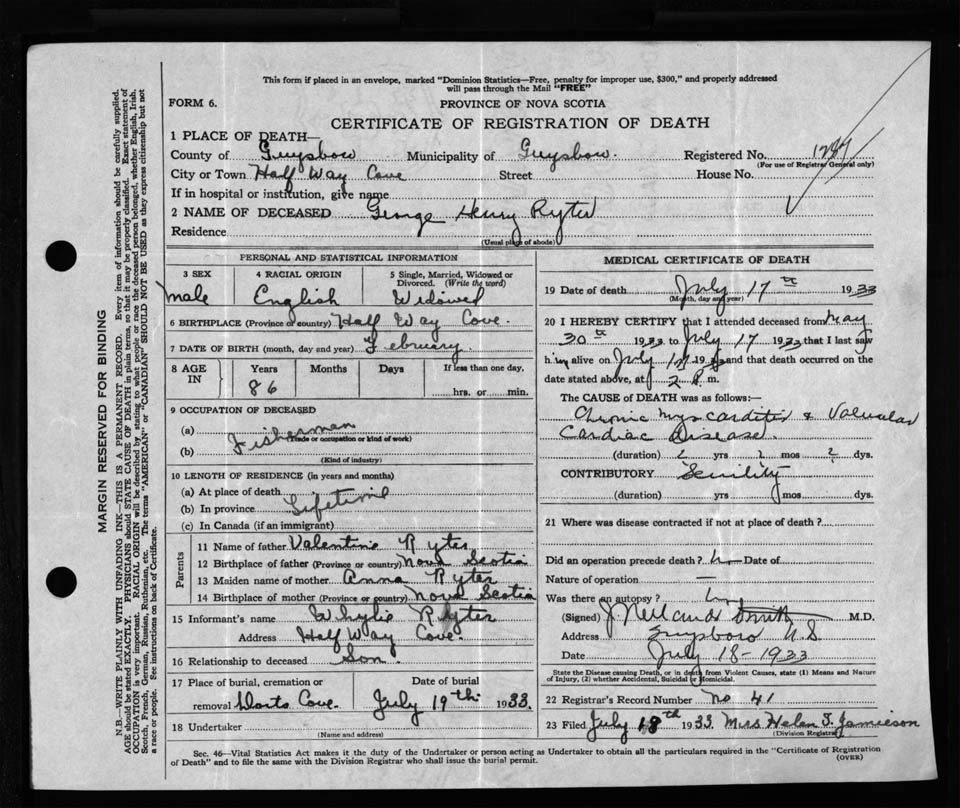 This form if placed in an envelope, marked "Dominion Statistics—Free, penalty for improper use, $300," and properly addressed
will pass through the Mail "FREE"
FORM 6.
PROVINCE OF NOVA SCOTIA
CERTIFICATE OF REGISTRATION OF DEATH
1 PLACE OF DEATH—
County of Guysboro Municipality of Guysboro. Registered No.
(For use of Registrar General only)
City or Town Half Way Cove Street House No.
If in hospital or institution, give name
2 NAME OF DECEASED George Henry Ryter
Residence
(Usual place of abode)
PERSONAL AND STATISTICAL INFORMATION
3 SEX 4 RACIAL ORIGIN 5 Single, Married, Widowed or
Divorced. (Write the word)
male English Widowed
6 BIRTHPLACE (Province or country) Half Way Cove.
7 DATE OF BIRTH (month, day and year) February
8 AGE IN Years Months Days If less than one day,
86 hrs. or min.
9 OCCUPATION OF DECEASED
(a) Fisherman
(Trade or occupation or kind of work)
(b)
(Kind of industry)
10 LENGTH OF RESIDENCE (in years and months)
(a) At place of death
(b) In province Lifetime
(c) In Canada (if an immigrant)
Parents
11 Name of father Valentine Ryter
12 Birthplace of father (Province or country) Nova Scotia
13 Maiden name of mother Anna Ryter
14 Birthplace of mother (Province or country) Nova Scotia
15 Informant's name Whylie Ryter
Address Half Way Cove.
16 Relationship to deceased Son.
17 Place of burial, cremation or Date of burial
removal Dorts Cove. July 19th 1933.
18 Undertaker
(Name and address)
MEDICAL CERTIFICATE OF DEATH
19 Date of death July 17th 1933
(Month, day and year)
20 I HEREBY CERTIFY that I attended deceased from May
30th 1933 to July 17 1933 that I last saw
him alive on July 17 1933 and that death occurred on the
date stated above, at 2 P. m.
The CAUSE of DEATH was as follows:—
Chronic Myocarditis & Valvular
Cardiac Disease.
(duration) 2 yrs 2 mos 2 dys.
CONTRIBUTORY Senility
(duration) yrs mos dys.
21 Where was disease contracted if not at place of death?
Did an operation precede death? Date of
Nature of operation —
Was there an autopsy?
(Signed) J M.D.
Address Guysboro N.S
Date July 18 - 1933
State the Disease causing Death, or in death from Violent Causes, state (1) Means and Nature
of Injury, (2) whether Accidental, Suicidal or Homicidal.
22 Registrar's Record Number No 41
23 Filed July 18th 1933 Mrs Helen T. Jamieson
(Division Registrar)
Sec. 46—Vital Statistics Act makes it the duty of the Undertaker or person acting as Undertaker to obtain all the particulars required in the "Certificate of Registration
of Death" and to file the same with the Division Registrar who shall issue the burial permit.
(OVER)
MARGIN RESERVED FOR BINDING
N.B.—WRITE PLAINLY WITH UNFADING INK—THIS IS A PERMANENT RECORD. Every item of information should be carefully supplied.
AGE should be stated EXACTLY. PHYSICIANS should STATE CAUSE OF DEATH in plain terms, so that it may be properly classified. Exact statement of
OCCUPATION is very important. RACIAL ORIGIN will be described by stating to what people or race the deceased person belonged, whether English, Irish,
Scotch, French, German, Russian, Ruthenian, etc. The terms "AMERICAN" or "CANADIAN" SHOULD NOT BE USED as they express citizenship but not
a race or people. See instructions on back of Certificate.